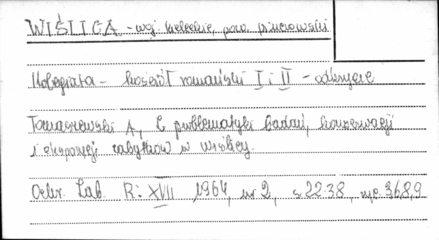 WIŚLICA - woj. kieleckie, pow. pińczowski
Kolegiata - kościół romański I i II - odkrycie
Tomaszewski A., Z problematyki badań, konserwacji
i ekspozycji zabytków w Wiślicy.
Ochr. Zab. R: XVII 1964, nr 2, s 22-38, ryc. 3,6,8,9